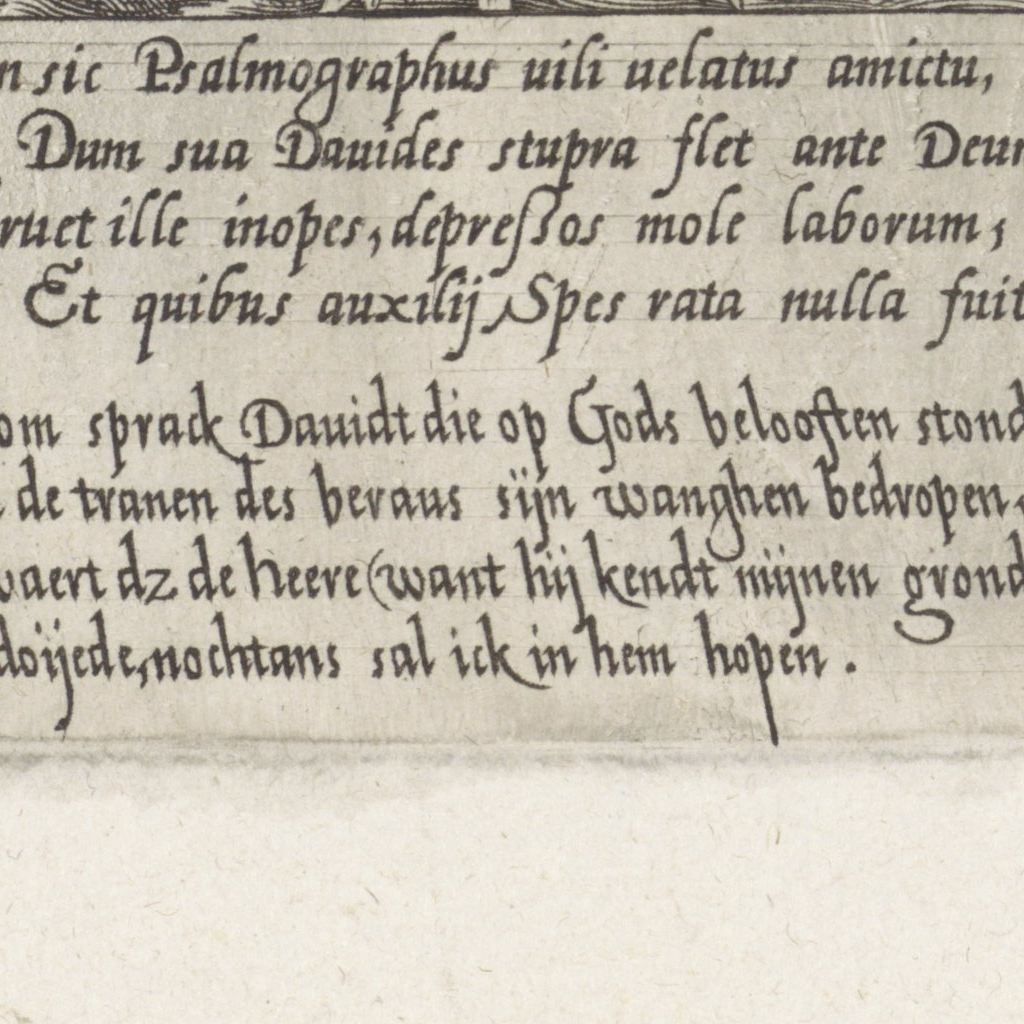 n sic Psalmographus uili uelatus amictu,
Dum sua Dauides stupra flet ante Deu
ruet ille inopes, depreſsos mole laborum;
Et quibus auxilij Spes rata nulla fuit
om sprack Dauidt die op Gods belooften stond
de tranen des beraus sijn wanghen bedropen
waert dz de heere (want hij kendt mijnen grond
doijede, nochtans sal ick in hem hopen.